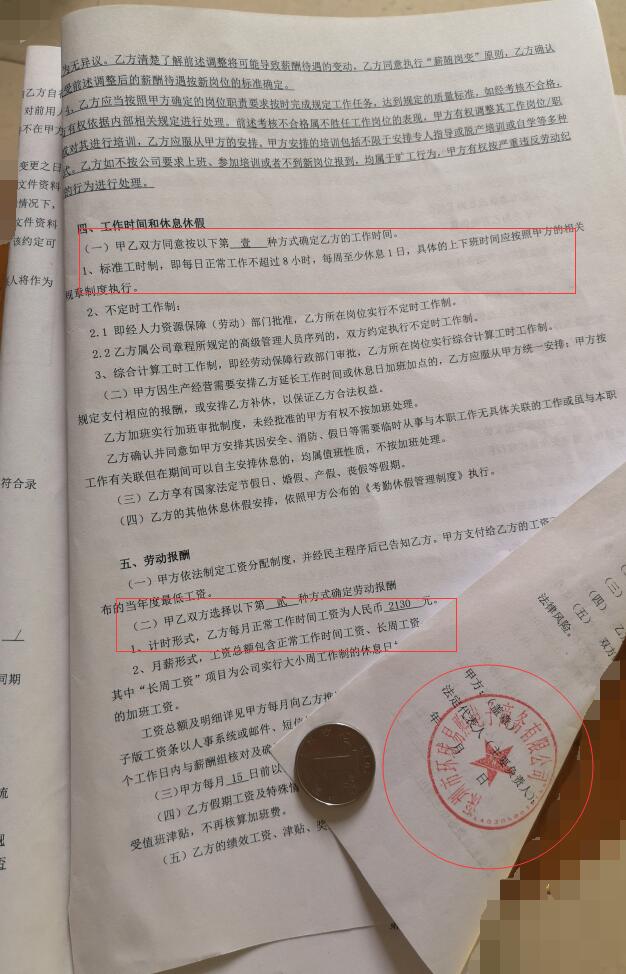 为无异议。乙方清楚了解前述调整将可能导致薪酬待遇的变动，乙方同意执行“薪随岗变”原则，乙方确认
受前述调整后的薪酬待遇按新岗位的标准确定。
4、乙方应当按照甲方确定的岗位职责要求按时完成规定工作任务，达到规定的质量标准，如经考核不合格，
有权依据内部相关规定进行处理。前述考核不合格属不胜任工作岗位的表现，甲方有权调整其工作岗位/职
或对其进行培训，乙方应服从甲方的安排，甲方安排的培训包括不限于安排专人指导或脱产培训或自学等多种
式。乙方如不按公司要求上班、参加培训或者不到新岗位报到，均属于旷工行为，甲方有权按严重违反劳动纪
的行为进行处理。
四、工作时间和休息休假
（一）甲乙双方同意按以下第 壹 种方式确定乙方的工作时间。
1、标准工时制，即每日正常工作不超过8小时，每周至少休息1日，具体的上下班时间应按照甲方的相关
规章制度执行。
2、不定时工作制：
2.1 即经人力资源保障（劳动）部门批准，乙方所在岗位实行不定时工作制。
2.2 乙方属公司章程所规定的高级管理人员序列的，双方约定执行不定时工作制。
3、综合计算工时工作制，即经劳动保障行政部门审批，乙方所在岗位实行综合计算工时工作制。
（二）甲方因生产经营需要安排乙方延长工作时间或休息日加班加点的，乙方应服从甲方统一安排；甲方按
规定支付相应的报酬，或安排乙方补休，以保证乙方合法权益。
乙方加班实行加班审批制度，未经批准的甲方有权不按加班处理。
乙方确认并同意如甲方安排其因安全、消防、假日等需要临时从事与本职工作无具体关联的工作或虽与本职
工作有关联但在期间可以自主安排休息的，均属值班性质，不按加班处理。
（三）乙方享有国家法定节假日、婚假、产假、丧假等假期。
（四）乙方的其他休息休假安排，依照甲方公布的《考勤休假管理制度》执行。
五、劳动报酬
（一）甲方依法制定工资分配制度，并经民主程序后已告知乙方。甲方支付给乙方的工资
布的当年度最低工资。
（二）甲乙双方选择以下第 贰 种方式确定劳动报酬
1、计时形式，乙方每月正常工作时间工资为人民币 2130 元。
2、月薪形式，工资总额包含正常工作时间工资、长周工资
其中“长周工资”项目为公司实行大小周工作制的休息日
的加班工资。
工资总额及明细详见甲方每月向乙方推
子版工资条以人事系统或邮件、短信
个工作日内与薪酬组核对及确
（三）甲方每月 15 日前以
（四）乙方假期工资及特殊情
受值班津贴，不再核算加班费。
（五）乙方的绩效工资、津贴、奖
乙方自
对前用人
不在甲方
变更之日
文件资料
情况下，
文件资料
该约定可
人将作为
符合录
同期
流
（三）
（四）
（五） 双方
法律风险。
甲方：（盖章）
法定代表人（主要负责人）：
年 月 日
圳市环球易购电子商务有限公司